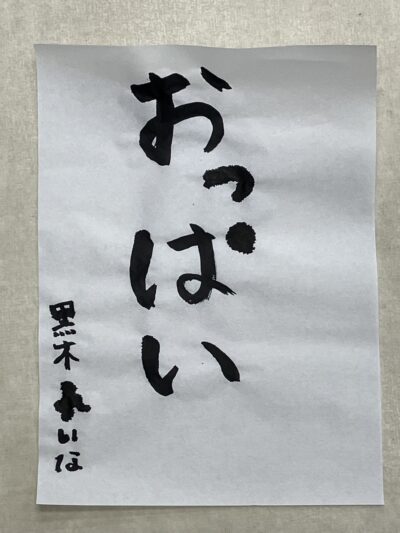 おっぱい
黒木れいな